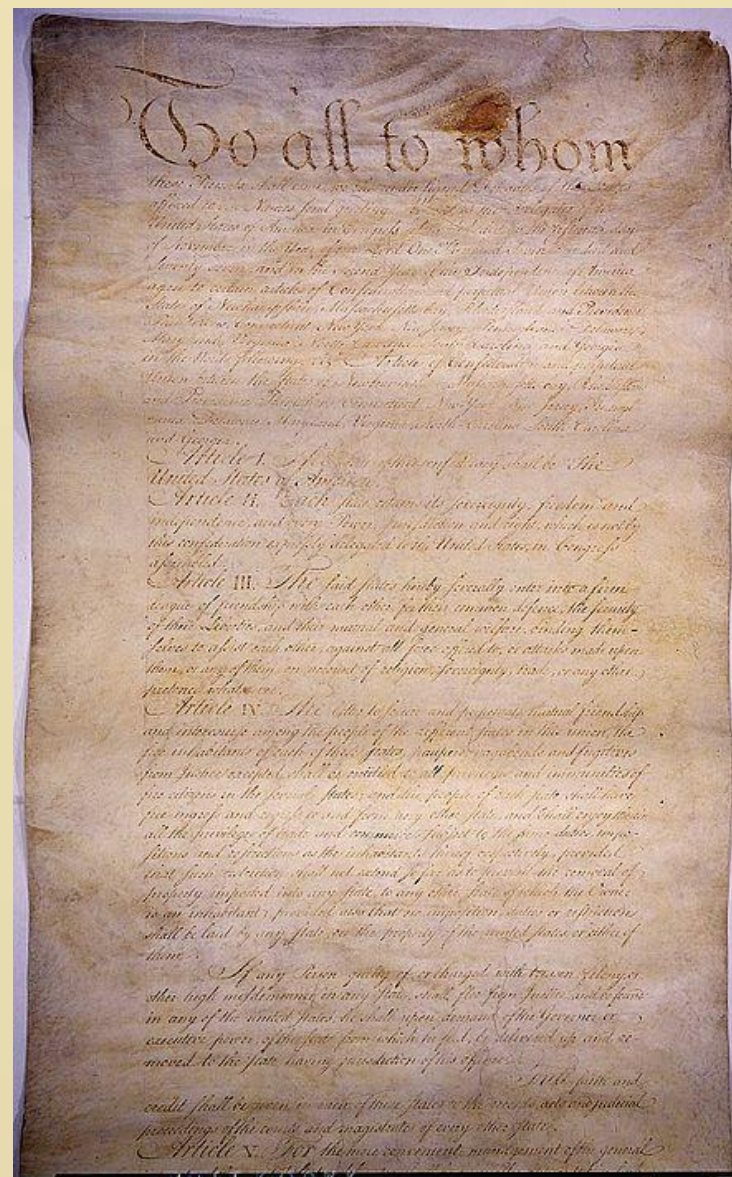 To all to whom
these Presents shall come, we the under signed Delegates of the States
affixed to our Names send greeting. Whereas the Delegates of the
United States of America in Congress assembled did on the fifteenth day
of November in the Year of our Lord One Thousand Seven Hundred and
Seventy seven, and in the Second Year of the Independence of America
agree to certain articles of Confederation and perpetual Union between the
States of Newhampshire, Massachusetts-bay, Rhodeisland and Providence
Plantations, Connecticut, New York, New Jersey, Pennsylvania, Delaware,
Maryland, Virginia, North-Carolina, South-Carolina and Georgia
in the Words following, viz. Articles of Confederation and perpetual
Union between the states of Newhampshire, Massachusetts-bay, Rhodeisland
and Providence Plantations, Connecticut, New-York, New-Jersey, Pennsyl-
vania, Delaware, Maryland, Virginia, North-Carolina, South-Carolina
and Georgia.
Article I. The Stile of this confederacy shall be "The
United States of America."
Article II. Each state retains its sovereignty, freedom and
independence, and every Power, Jurisdiction and right, which is not by
this confederation expressly delegated to the United States, in Congress
assembled.
Article III. The said states hereby severally enter into a firm
league of friendship with each other, for their common defence, the security
of their Liberties, and their mutual and general welfare, binding them-
selves to assist each other, against all force offered to, or attacks made upon
them, or any of them, on account of religion, sovereignty, trade, or any other
pretence whatever.
Article IV. The better to secure and perpetuate mutual friendship
and intercourse among the people of the different states in this union, the
free inhabitants of each of these states, paupers, vagabonds and fugitives
from Justice excepted, shall be entitled to all privileges and immunities of
free citizens in the several states; and the people of each state shall have
free ingress and regress to and from any other state, and shall enjoy therein
all the privileges of trade and commerce, subject to the same duties, impo-
sitions and restrictions as the inhabitants thereof respectively, provided
that such restriction shall not extend so far as to prevent the removal of
property imported into any state, to any other state of which the Owner
is an inhabitant; provided also that no imposition, duties or restriction
shall be laid by any state, on the property of the united states, or either of
them.
If any Person guilty of, or charged with treason, felony, or
other high misdemeanor in any state, shall flee from Justice, and be found
in any of the united states, he shall upon demand of the Governor or
executive power, of the state from which he fled, be delivered up and re-
moved to the state having jurisdiction of his offence.
Full faith and
credit shall be given in each of these states to the records, acts and judicial
proceedings of the courts and magistrates of every other state.
Article V. For the more convenient management of the general